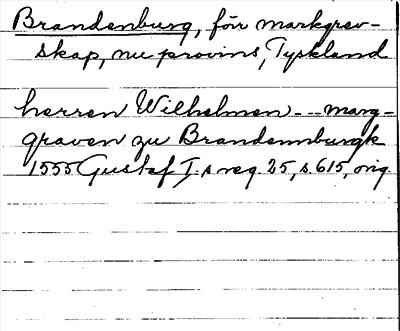 Brandenburg, förr markgrev-
skap, nu provins, Tyskland
herren Wilhelmen --- marg-
graven zu Brandemnburgk
1555 Gustaf I.s reg. 25, s. 615, orig.